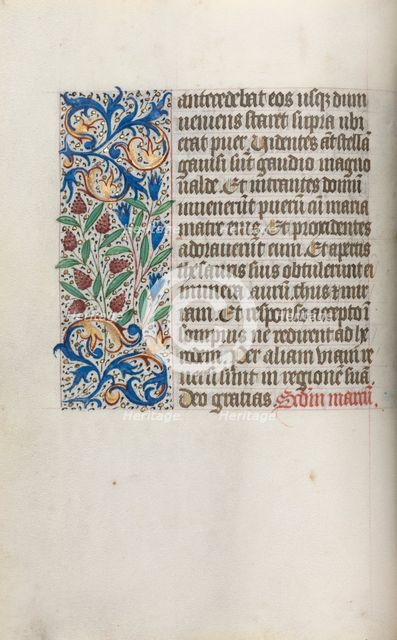 antecedebat eos usq̄ dum
veniens staret supra ubi
erat puer. Videntes aūt stellā
gavisi sūt gaudio magno
valde. Et intrantes domū
invenerūt puerū cū maria
matre eius. Et procidentes
adoraverūt eum. Et apertis
thesauris suis obtulerunt ei
munera aurū. thus & mir
ram. Et responso accepto ī
sompnis ne redirent ad he
rodem. Per aliam viam re
versi sunt in regionē suā
Deo gratias. Scdm marcū.
Heritage
Heritage
Heritage
Heritage